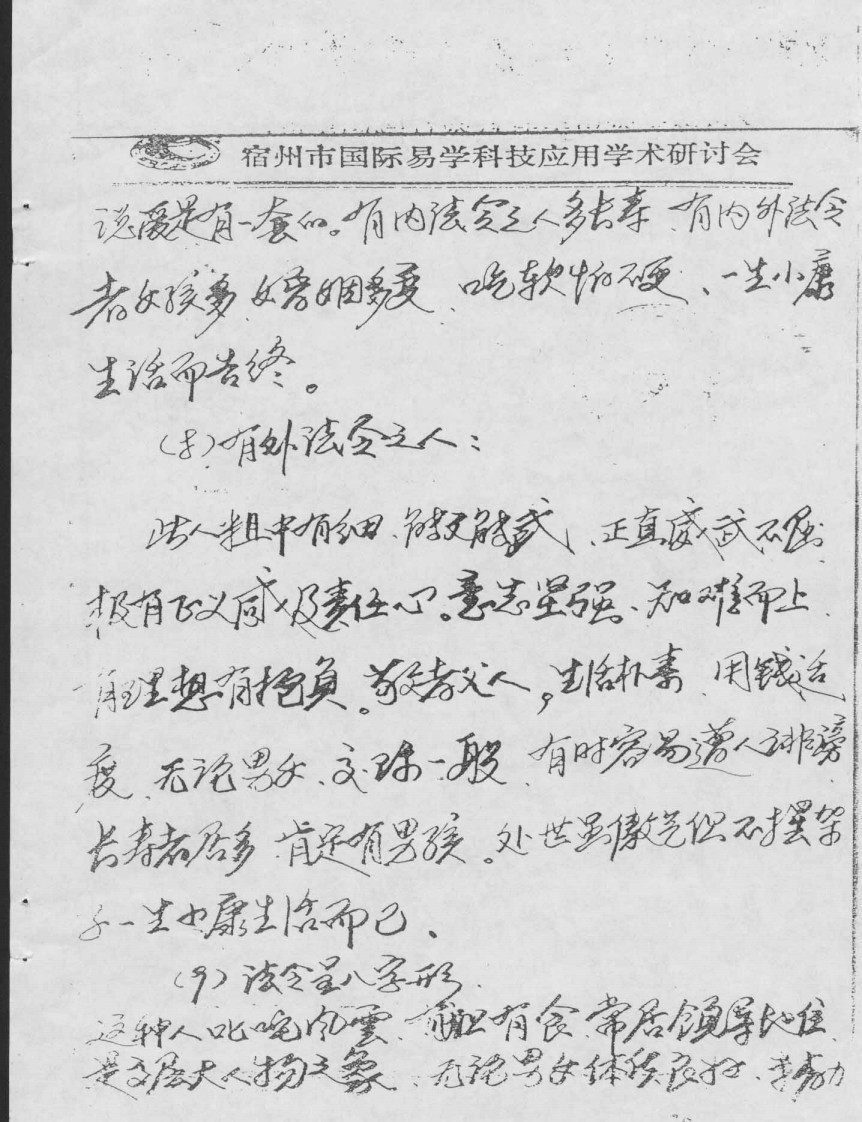 宿州市国际易学科技应用学术研讨会
说爱是有一套的。有内法令之人多长寿、有内外法令
者女孩多、婚姻多变、吃软怕硬、一生小康
生活而告终。
(8)有外法令之人:
此人粗中有细、能文能武、正直威武不屈
极有正义感及责任心。意志坚强、知难而上
有理想有抱负。敬孝父人,生活朴素、用钱适
度、无论男女、文 一般、有时容易遭人诽谤
长寿者居多、肯定有男孩。处世虽傲气但不摆架
子一生小康生活而已、
(9)法令呈八字形
这种人叱咤风雲、有胆有食、常居领导地位
是 大人物之象、无论男女体质良好、